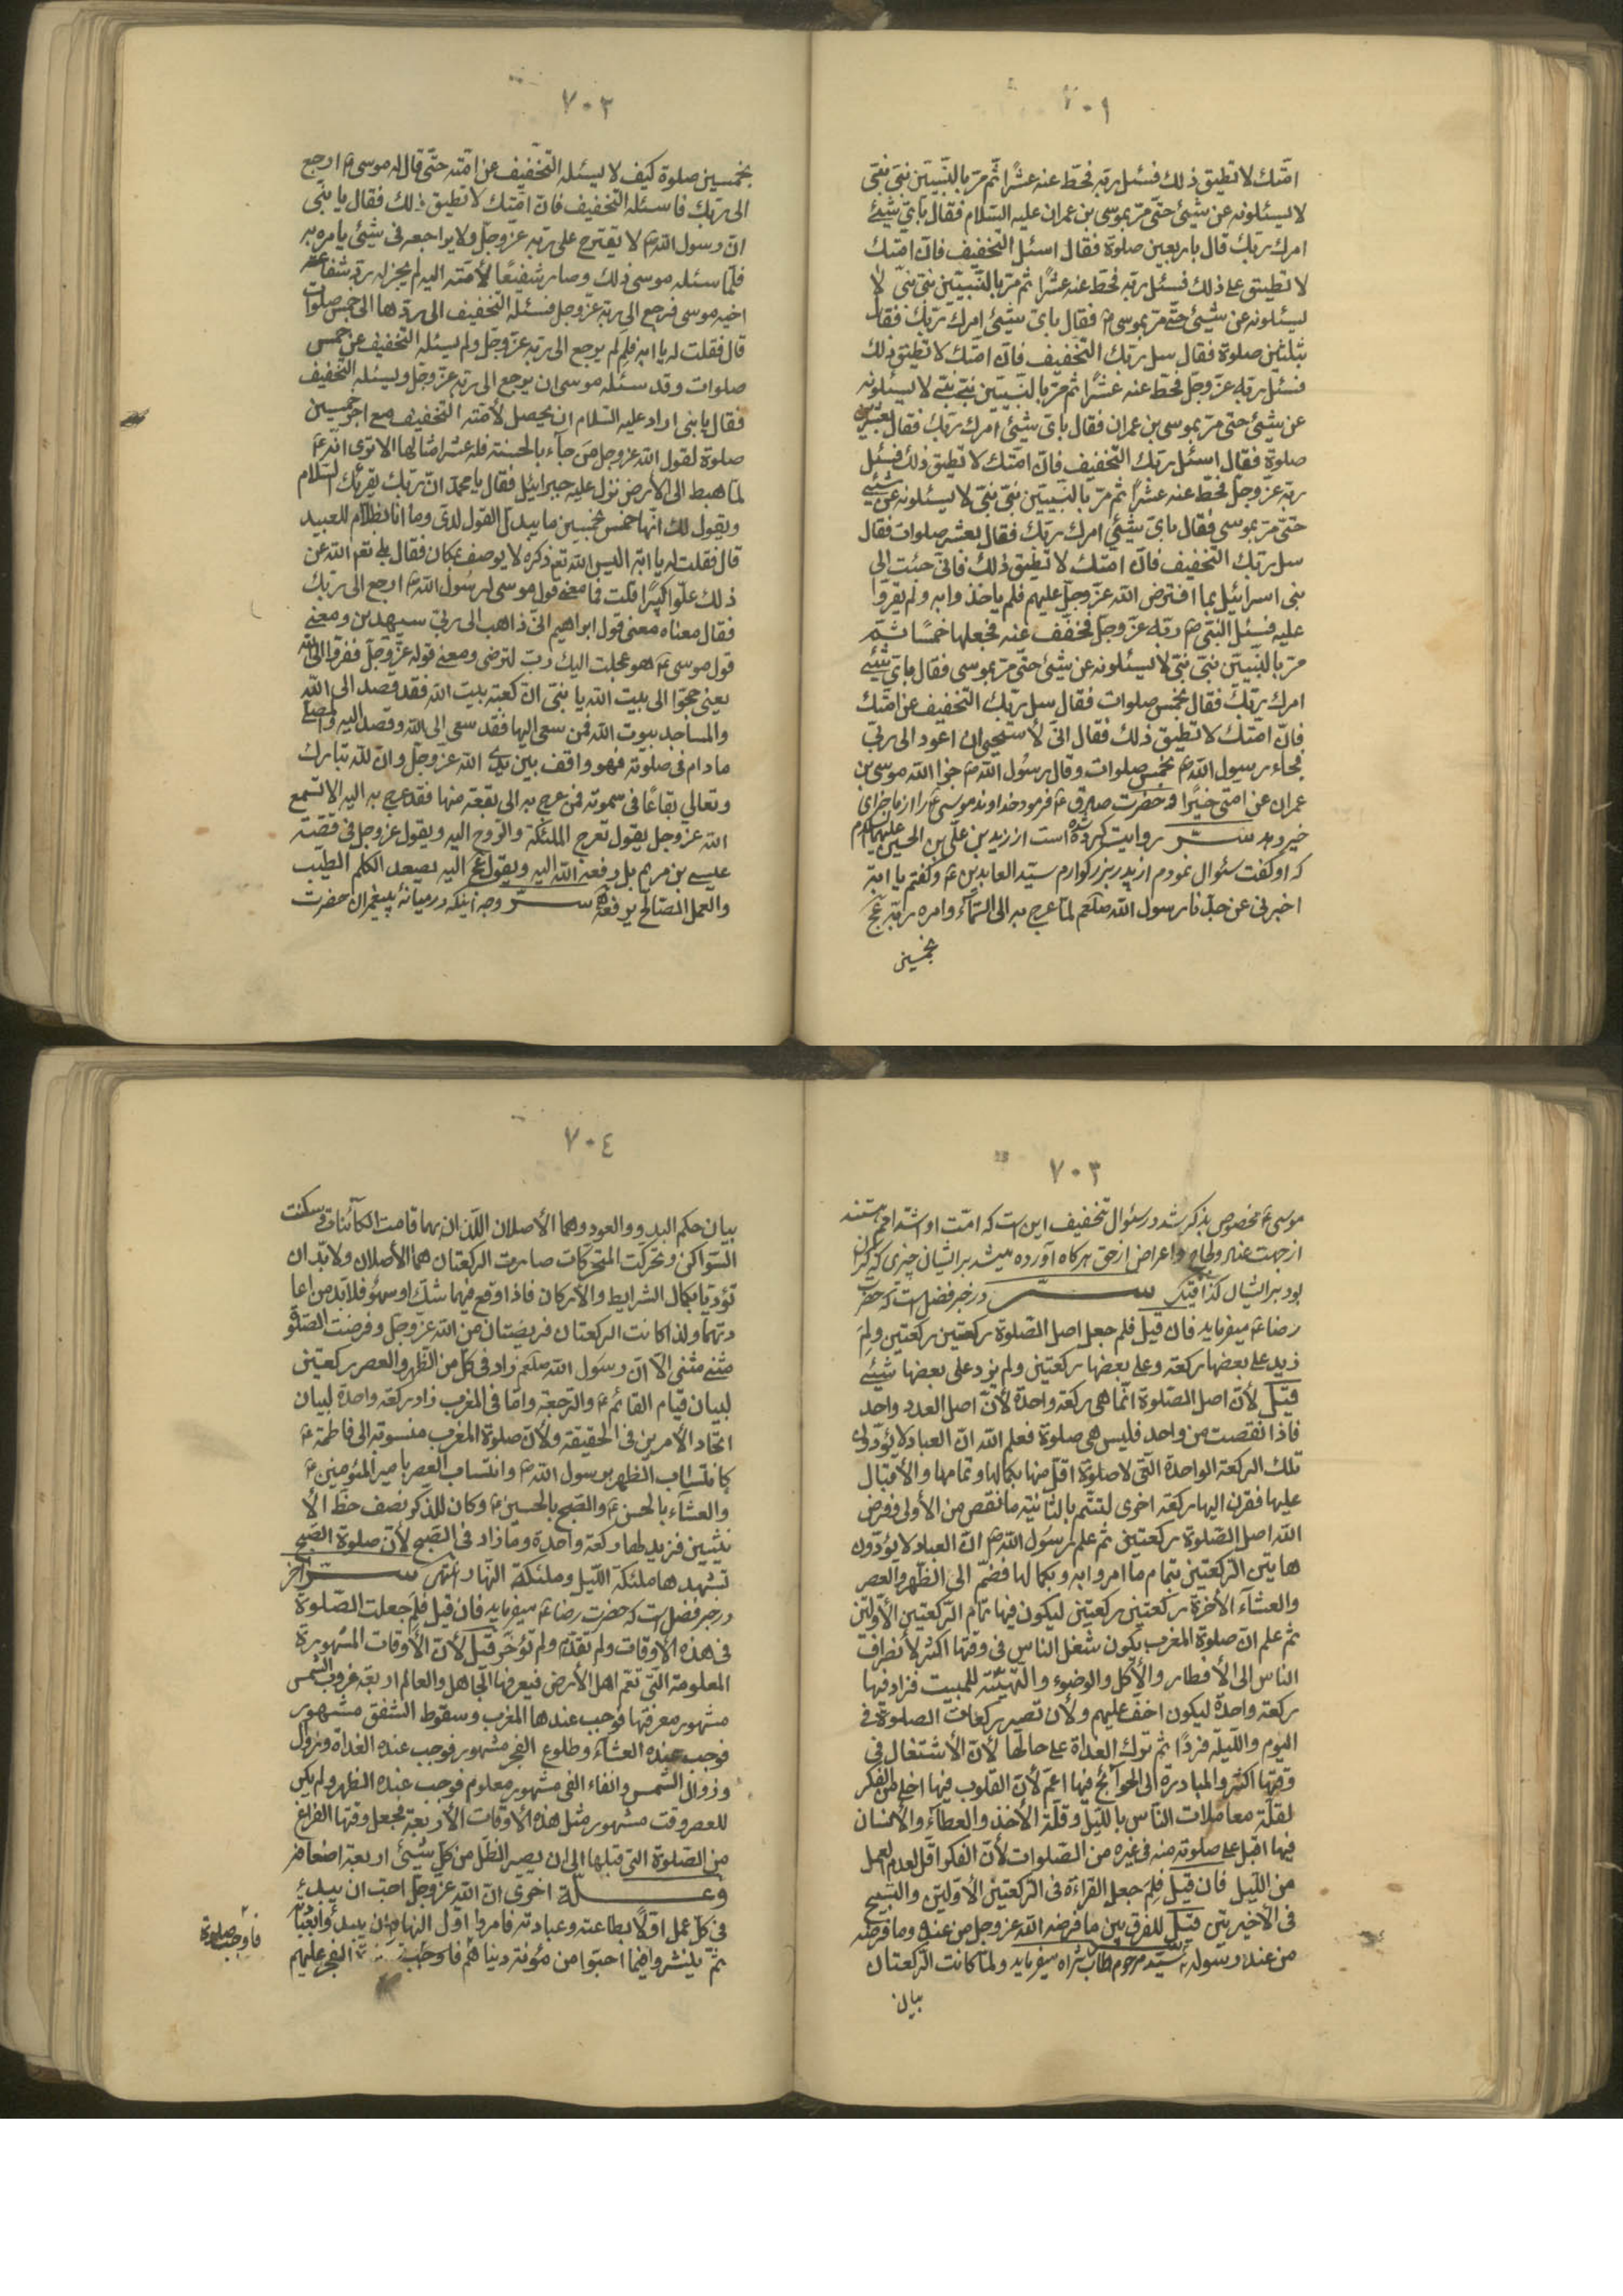 ٧٠١
امّتك لا تطيق ذلك فسئل ربّه فحطّ عنه عشرًا ثم مرّ بالنّبيّين نبيّ نبيّ
لا يسئلونه عن شيئ حتّى مرّ بموسى بن عمران عليه السّلام فقال بايّ شيئ
امرك ربّك قال باربعين صلوة فقال اسئل التخفيف فانّ امّتك
لا تطيق على ذلك فسئل ربّه فحطّ عنه عشرًا ثم مرّ بالنّبيّين نبيّ نبيّ لا
يسئلونه عن شيئ حتّى مرّ بموسى فقال بايّ شيئ امرك ربّك فقال
بثلثين صلوة فقال سل ربّك التخفيف فانّ امّتك لا تطيق ذلك
فسئل ربّه عزّ وجلّ فحطّ عنه عشرًا ثم مرّ بالنّبيّين نبيّ نبيّ لا يسئلونه
عن شيئ حتى مرّ بموسى بن عمران فقال بايّ شيئ امرك ربّك فقال بعشرين
صلوة فقال اسئل ربّك التخفيف فانّ امّتك لا تطيق ذلك فسئل
ربّه عزّ وجلّ فحطّ عنه عشرًا ثم مرّ بالنّبيّين نبيّ نبيّ لا يسئلونه عن شيئ
حتى مرّ بموسى فقال بايّ شيئ امرك ربّك فقال بعشر صلوات فقال
سل ربّك التخفيف فانّ امتك لا تطيق ذلك فانّى جئت الى
بنى اسرائيل بما افترض الله عزّ وجلّ عليهم فلم ياخذوا به ولم يقرّوا
عليه فسئل النبّى ص ربّه عزّ وجلّ فخفّف عنه فجعلها خمسًا ثمّ
مرّ بالنّبيّين نبيّ نبيّ لا يسئلونه عن شيئ حتّى مرّ بموسى فقال بايّ شيئ
امرك ربّك فقال بخمس صلوات فقال سل ربّك التخفيف عن امّتك
فانّ امّتك لا تطيق ذلك فقال انّى لأستحيى ان اعود الى ربّى
فجاء رسول الله ص بخمس صلوات وقال رسول الله ص جزا الله موسى بن
عمران عن امتى خيرًا و حضرت صادق ع فرمود خداوند موسى ع را از ما جزاى
خير دهد ســر روايت كرده شده است از زيد بن على بن الحسين عليهم السلام
كه او گفت سئوال نمودم از پدر بزرگوارم سيّد العابدين ع وگفتم يا ابه
اخبرنى عن جدّنا رسول الله صلعم لمّا عرج به الى السّمآء وامره ربّه عج
بخمسين
٧٠٢
بخمسين صلوة كيف لا يسئله التخفيف عن امّته حتّى قال له موسى ع ارجع
الى ربّك فاسئله التخفيف فانّ امّتك لا تطيق ذلك فقال يا بنّى
انّ رسول الله ص لا يقترح على ربّه عزّ وجلّ ولا يراجعه فى شيئى يامره به
فلمّا سئله موسى ذلك وصار شفيعًا لأمّته اليه لم يجز له ردّ شفاعة
اخيه موسى فرجع الى ربّه عزّ وجل فسئله التخفيف الى ردّها الى خمس صلوات
قال فقلت له يا ابه فلم لم يرجع الى ربّه عزّ وجلّ ولم يسئله التخفيف عن خمس
صلوات وقد سئله موسى ان يرجع الى ربّه عزّ وجلّ ويسئله التخفيف
فقال يا بنى اراد عليه السّلام ان يحصل لأمّته التخفيف مع اجر خمسين
صلوة لقول الله عزّ وجل من جآء بالحسنة فله عشر امثالها الا ترى انّه ع
لمّا هبط الى الأرض نزل عليه جبرائيل فقال يا محمّد انّ ربّك يقرئك السّلام
ويقول لك انّها خمس بخمسين ما يبدل القول لدىّ وما انا بظلّام للعبيد
قال فقلت له يا ابه اليس الله تع ذكره لا يوصف بمكان فقال بلى تع الله عن
ذلك علّوا كبيرًا قلت فما معنى قول موسى لرسول الله ص ارجع الى ربّك
فقال معناه معنى قول ابراهيم انّى ذاهب الى ربّى سيهدين ومعنى
قول موسى ع وعجلت اليك ربّ لترضى ومعنى قوله عزّ وجلّ ففرّوا الى الله
يعنى حجّوا الى بيت الله يا بنّى انّ كعبة بيت الله فقد قصد الى الله
والمساجد بيوت الله فمن سعى اليها فقد سعى الى الله وقصد اليه والمصلّى
ما دام فى صلوته فهو واقف بين يدى الله عزّ وجلّ وانّ لله تبارك
وتعالى بقاعًا فى سمواته فمن عرج به الى بقعة منها فقد عرج به اليه الا تسمع
الله عزّ وجل يقول تعرج الملئكة والرّوح اليه ويقول عزّ وجل فى قصّة
عيسى بن مريم بل رفعه الله اليه ويقول عج اليه يصعد الكلم الطيّب
والعمل الصّالح يرفعه ســر وجه اينكه در ميانهٔ پيغمبران حضرت
٧٠٣
موسى ع مخصوص بذكر شد در سئوال تخفيف اين است كه امّت او اشدّ امم هستند
از جهت عناد ولجاج واعراض از حق هرگاه آورده ميشد بر ايشان چيزى كه گران
بود بر ايشان كذا قيل ســر در خبر فضل است كه حضرت
رضا ع ميفرمايد فان قيل فلم جعل اصل الصّلوة ركعتين ركعتين ولِمَ
زيد على بعضها ركعة وعلى بعضها ركعتين ولم يزد على بعضها شيئ
قيل لأنّ اصل الصّلوة انّما هى ركعة واحدة لأنّ اصل العدد واحد
فاذا نقصت من واحد فليس هى صلوة فعلم الله انّ العباد لا يؤدّون
تلك الركعة الواحدة الّتى لا صلوة اقلّ منها بكمالها وتمامها والأقبال
عليها فقرن اليها ركعة اخرى لتتمّ بالثّانية ما نقص من الأولى ففرض
الله اصل الصّلوة ركعتين ثم علم رسول الله ص انّ العباد لا يؤدّون
هاتين الرّكعتين بتمام ما امروا به وبكمالها فضمّ الى الظّهر والعصر
والعشآء الآخرة ركعتين ركعتين ليكون فيها تمام الرّكعتين الأوّلتين
ثم علم انّ صلوة المغرب يكون شغل الناس فى وقتها اكثر لأنصراف
النّاس الى الأفطار والأكل والوضوء والتّهيئة للمبيت فزاد فيها
ركعة واحدة ليكون اخفّ عليهم ولأن تصير ركعات الصلوة فى
اليوم والليلة فردًا ثم ترك الغداة على حالها لأنّ الأشتغال فى
وقتها اكثر والمبادرة الى الحوآئج فيها اعمّ لأنّ القلوب فيها اخلى من الفكر
لقلّة معاملات النّاس بالليّل وقلّة الأخذ والعطآء والأنسان
فيها اقبل على صلوته منه فى غيره من الصّلوات لأنّ الفكر اقلّ لعدم العمل
من اللّيل فان قيل فلِمَ جعل القراءة فى الرّكعتين الأوّلتين والتسبيح
فى الأخيرتين قيل للفرق بين ما فرضه الله عزّ وجل من عنده وما فرضه
من عند رسوله سيّد مرحوم طاب ثراه ميفرمايد ولمّا كانت الرّكعتان
بيان
٧٠٤
بيان حكم البدو والعود وهما الأصلان اللّذان بهما قامت الكآئنات وسكنت
السّواكن وتحرّكت المتحرّكات صارت الركعتان هما الأصلان ولابدّ ان
تؤدّيا بكمال الشرايط والأركان فاذا وقع فيهما شكّ او سهو فلابدّ من اعا
دتهما ولذا كانت الركعتان فريضتان من الله عزّ وجل وفرضت الصّلوة
مثنى مثنى الّا انّ رسول الله صلعم زاد فى كلّ من الظّهر والعصر ركعتين
لبيان قيام القائم ع والرّجعة وامّا فى المغرب زاد ركعة واحدة لبيان
اتّحاد الأمرين فى الحقيقة ولأنّ صلوة المغرب منسوبة الى فاطمة ع
كانتساب الظهر برسول الله ص وانتساب العصر بامير المؤمنين ع
والعشآء بالحسن ع والصّبح بالحسين ع وكان للذّكر نصف حظّ الأ
نثيين فزيد لها ركعة واحدة وما زاد فى الصّبح لأنّ صلوة الصّبح
تشهدها ملئكة اللّيل وملئكة النّهار انتهى ســر آخر
در خبر فضل است كه حضرت رضا ع ميفرمايد فان قيل فلم جعلت الصّلوة
فى هذه الأوقات ولم تقدّم ولم تؤخّر قيل لأنّ الأوقات المشهورة
المعلومة الّتى تعمّ اهل الأرض فيعرفها الجاهل والعالم اربعة غروب الشمس
مشهور معرفتها فوجب عندها المغرب وسقوط الشفق مشهور
فوجب عنده العشآء وطلوع الفجر مشهور فوجب عنده الغداة ونزول
وزوال الشّمس وانفاء الفئ مشهور معلوم فوجب عنده الظهر ولم يكن
للعصر وقت مشهور مثل هذه الأوقات الأربعة فجعل وقتها الفراغ
من الصّلوة التى قبلها الى ان يصير الظلّ من كلّ شيئى اربعة اضعافه
وعــلّة اخرى انّ الله عزّ وجلّ احبّ ان يبدئ
فى كلّ عمل اوّلًا بطاعته وعبادته فامروا اوّل النهار ان يبدأوا بعبادته
ثمّ ينتشروا فيما احبّوا من مؤنة دنياهم فاوجب الفجر عليهم
فاوجب صلوة